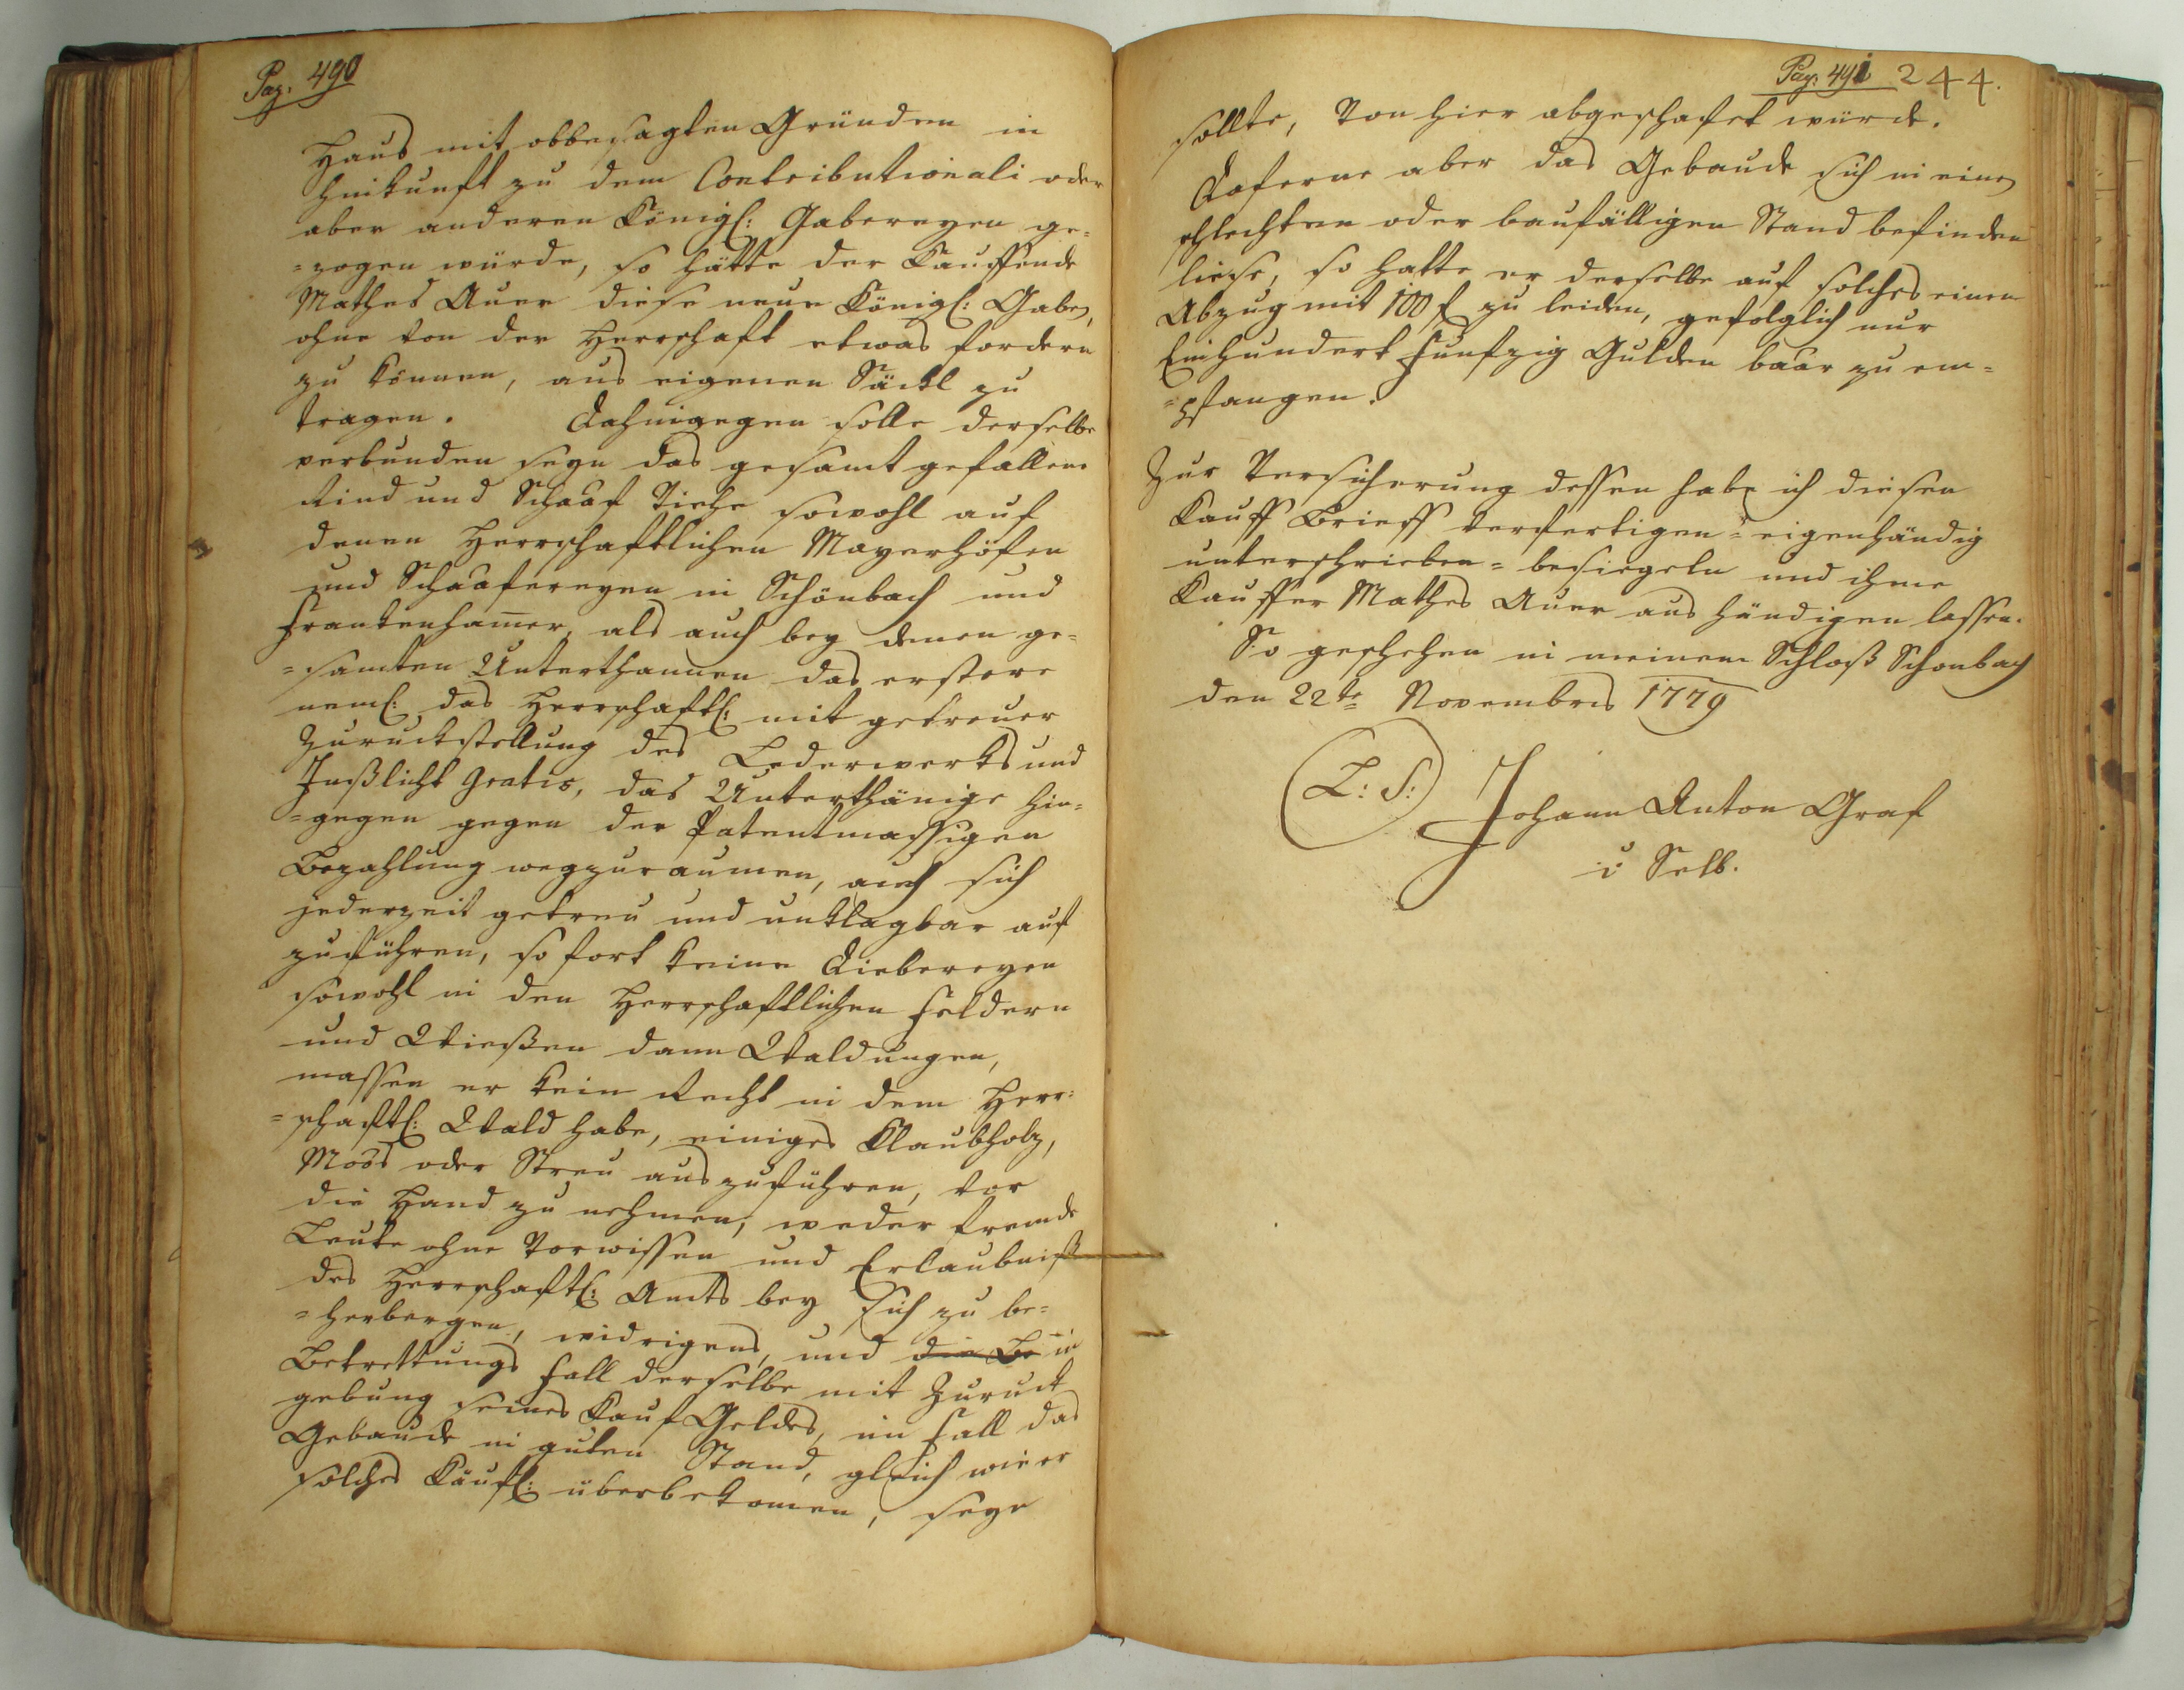 Pag. 490
Haus mit obbesagten Gründen in
Hinkunft zu dem Contributionali oder
aber anderen Königl: Gabereyen ge=
=zogen würde, so hätte der Kauffende
Mathes Auer diese neue Königl: Gabe,
ohne von der Herrschaft etwas fordern
zu können, aus eigenen Säckl zu
tragen. Dahingegen solle derselbe
verbunden seyn das gesamt gefallene
Rind und Schaaf Viehe sowohl auf
denen Herrschaftlichen Mayerhöfen
und Schaafereyen in Schönbach und
Frankenham̅er, als auch bey denen ge=
=samten Unterthannen das erstere
neml: das Herrschaftl: mit getreuer
Zuruckstellung des Lederwerks und
Inßlicht gratis, das Unterthänige hin=
=gegen gegen der Patentmassigen
Bezahlung wegzuraumen, auch sich
jederzeit getreu und unklagbar auf
zuführen, so fort keine Diebereyen
sowohl in den Herrschaftlichen Feldern
und Wießen dann Waldungen,
massen er kein Recht in dem Herr=
=schaftl: Wald habe, einiges Klaubholz,
Moos oder Streu auszuführen, vor
die Hand zu nehmen, weder fremde
Leute ohne Vorwissen und Erlaubniß
des Herrschaftl: Amts bey sich zu be=
=herbergen, widrigens, und die Be in
Betrettungs Fall derselbe mit Zuruck
gebung seines Kauf Geldes, im Fall das
Gebäude in guten Stand, gleich wie er
solches Käufl: überbekomen, seye
Pag. 491 244.
sollte, von hier abgeschafet würde.
Daferne aber das Gebäude sich in einen
schlechten oder baufälligen Stand befinden
liese, so hatte er derselbe auf solches einen
Abzug mit 100 f zu leiden, gefolglich nur
Einhundert Funfzig Gulden baar zu em=
=pfangen.
Zur Versicherung dessen habe ich diesen
Kauff Brieff verfertigen= eigenhändig
unterschrieben= besiegeln und ihme
Kauffer Mathes Auer aus händigen lassen.
So geschehen in meinem Schloß Schonbach
den 22te Novembris 1779
L: S: Johann Anton Graf
v: Selb.